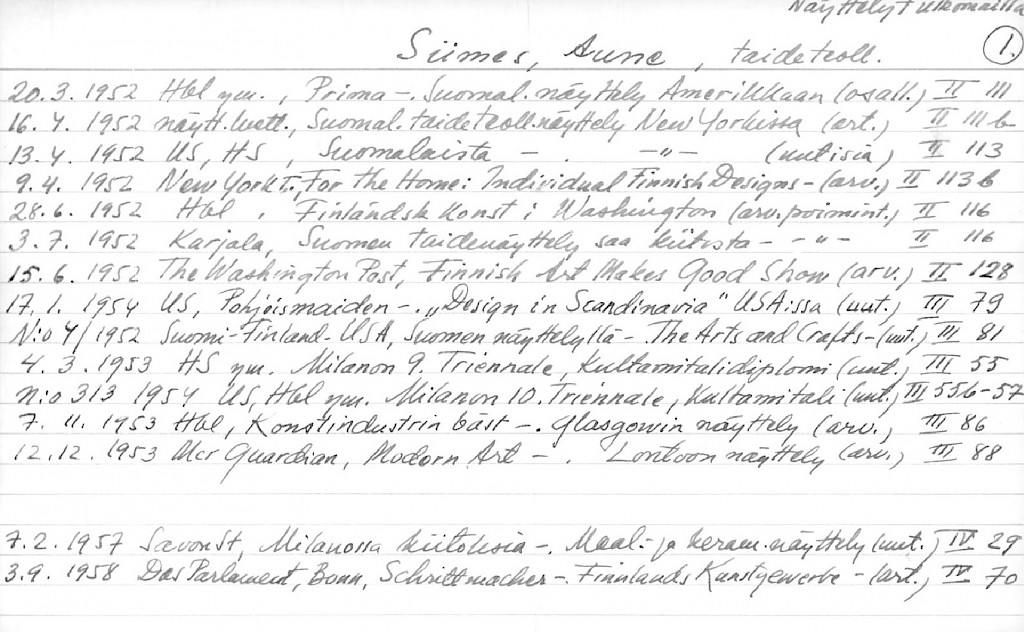 Näyttelyt ulkomailla
1.
Siimes, Aune, taideteoll.
20.3.1952 Hbl ym., Prima -. Suomal. näyttely Amerikkaan (osall.) II 111
16.4.1952 näytt.luett., Suomal. taideteoll.näyttely New Yorkissa (art.) II 111b
13.4.1952 US, HS, Suomalaista - . -"- (uutisia) II 113
9.4.1952 New York T., For the Home: Individual Finnish Designs - (arv.) II 113b
28.6.1952 Hbl, Finländsk konst i Washington (arv. poimint.) II 116
3.7.1952 Karjala, Suomen taidenäyttely saa kiitosta - - " - II 116
15.6.1952 The Washington Post, Finnish Art Makes Good Show (arv.) II 128
17.1.1954 US, Pohjoismaiden -. „Design in Scandinavia" USA:ssa (uut.) III 79
N:o 4/1952 Suomi-Finland-USA, Suomen näyttelyllä - The Arts and Crafts - (uut.) III 81
4.3.1953 HS ym. Milanon 9. Triennale, Kultamitalidiplomi (uut.) III 55
n:o 313 1954 US, Hbl ym. Milanon 10. Triennale, Kultamitali (uut.) III 55b-57
7.11.1953 Hbl, Konstindustrin bäst -. Glasgowin näyttely (arv.) III 86
12.12.1953 Mcr Guardian, Modern Art - . Lontoon näyttely (arv.) III 88
7.2.1957 SavonSt, Milanossa kiitoksia -. Maal.- ja keram.näyttely (uut.) IV 29
3.9.1958 Das Parlament, Bonn, Schrittmacher -. Finnlands Kunstgewerbe - (art.) IV 70